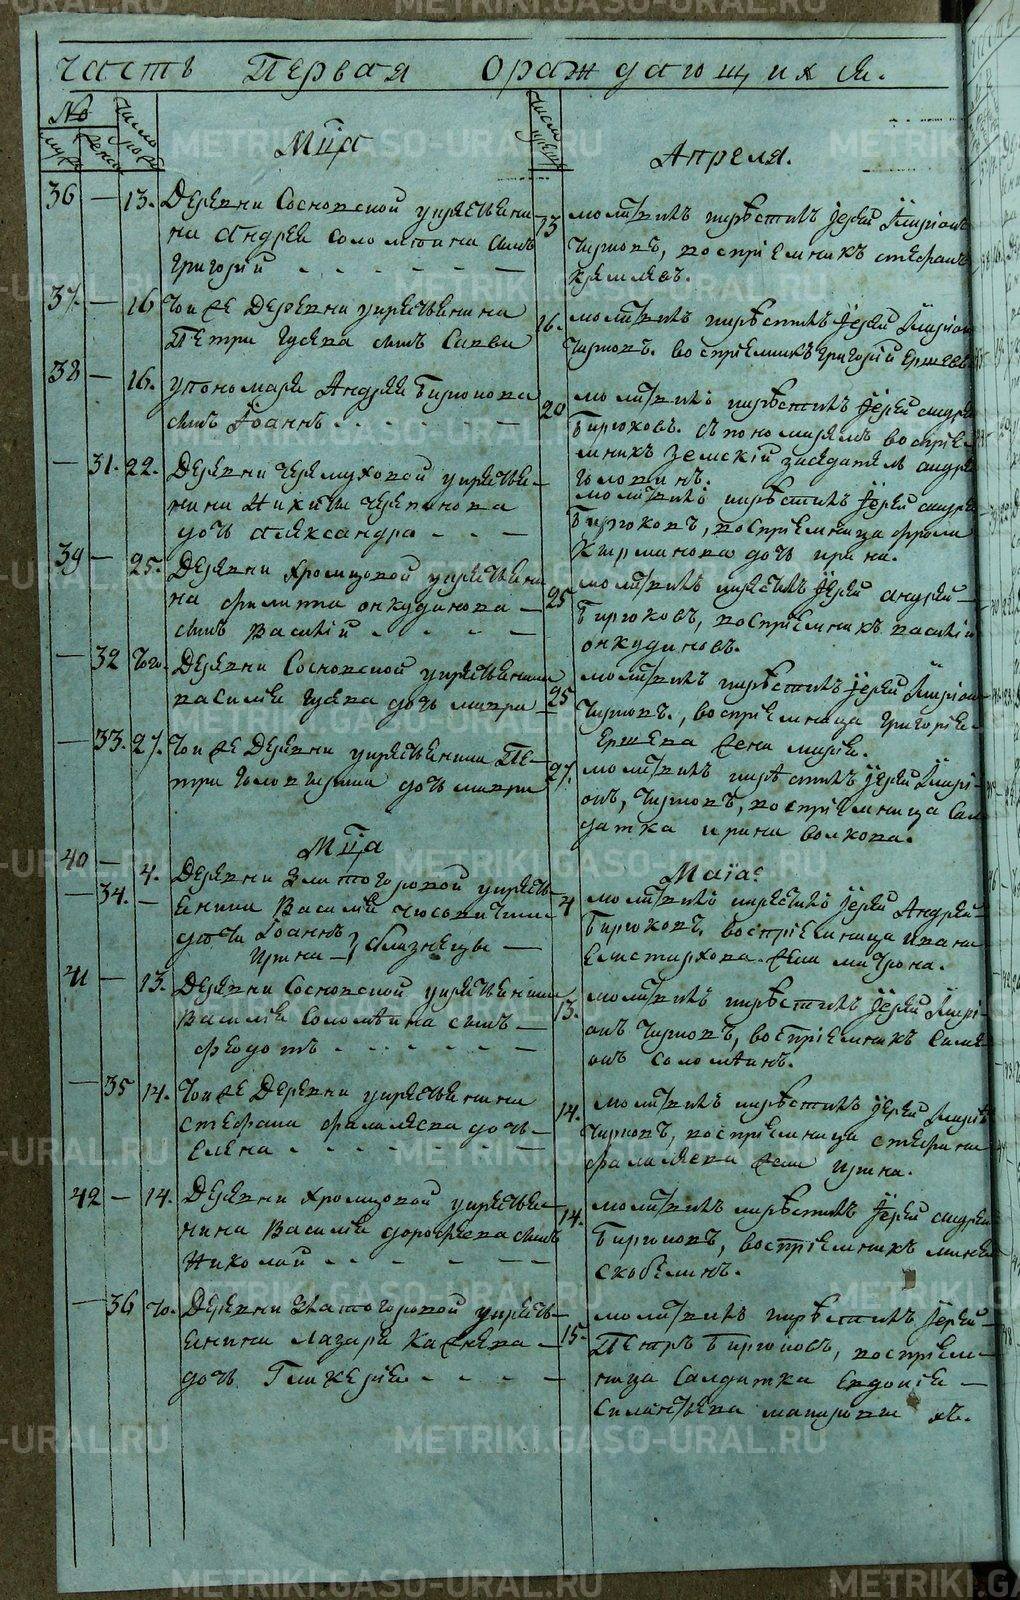 METRIKI.GASO-URAL.RU
Часть Первая Ораждающихся.
№
числа рожд.
муж. женс.
Мца
Апреля.
36 — 13. Деревни Сосновской крестьяни-
на Андрея Соломеина сынъ
Григорий
13 молитвилъ и крѣстилъ Іерей Киріонъ
Чирковъ, воспріемникъ стефанъ
37. — 16 той же Деревни крестьянина
Петра Гусева сынъ Савва
16. молитвилъ и крѣстилъ Іерей Киріон
Чирковъ. воспріемникъ Григорій Ершевъ
38 — 16. пономаря Андрея Бирюкова
сынъ Іоаннъ
20 молитвилъ и крѣстилъ Іерей андрей
Бирюковъ. съ пономаремъ воспріем-
никъ Земскій заседатель андрей
— 31. 22. Деревни черемуховой крестья-
нина Никиты черепанова
дочь александра
молитвилъ и крѣстилъ Іерей андрей
Бирюковъ, воспріемница фрола
дочь ирина.
39 — 25. Деревни Хромцовой крестьяни-
на филипа онкудинова
сынъ Василий
25 молитвилъ и крестилъ Іерей андрей
Бирюковъ, воспріемникъ василій
онкудиновъ.
— 32 Деревни Сосновской крестьянина
василия Гусева дочь мавра
25 молитвилъ и крѣстилъ Іерей Киріон
Чирковъ., воспріемница Григорія
Ершева жена марія.
— 33. 27. той же Деревни крестьянина Пе-
тра дочь мавра
27. молитвилъ и крѣстилъ Іерей Кирі-
онъ, Чирковъ, воспріемница Сал-
датка ирина волкова.
Мца
Маіа:
40 — 4. Деревни Златогоровой кресть-
34. — янина Василия
дети Іоаннъ
Ирина } близнецы —
4 молитвилъ и крестилъ Іерей Андрей
Бирюковъ, воспріемница ивана
Елистархова. жена матрона.
41 — 13. Деревни Сосновской крестьянина
Василия Соломѣина сынъ —
феодотъ
13. молитвилъ и крѣстилъ Іерей Кирі-
онъ Чирковъ, воспріемникъ Симе-
онъ соломѣинъ.
— 35 14. той же Деревни крестьянина
стефана фалалеева дочь —
Елена
14. молитвилъ и крѣстилъ Іерей Киріо
Чирковъ, воспріемница стефана
фалалеева жена ирина.
42 — 14. Деревни Хромцовой крестья-
нина Василия дорофеева сынъ
Николай
14. молитвилъ и крѣстилъ Іерей андрей
Бирюковъ, воспріемникъ мина
скобелинъ.
— 36 Деревни Златогоровой кресть-
янина Лазаря Кажева —
дочь Гликерія
15. молитвилъ и крѣстилъ Іерей
Петръ Бирюковъ, воспріем-
ница Салдатка Евдокія —